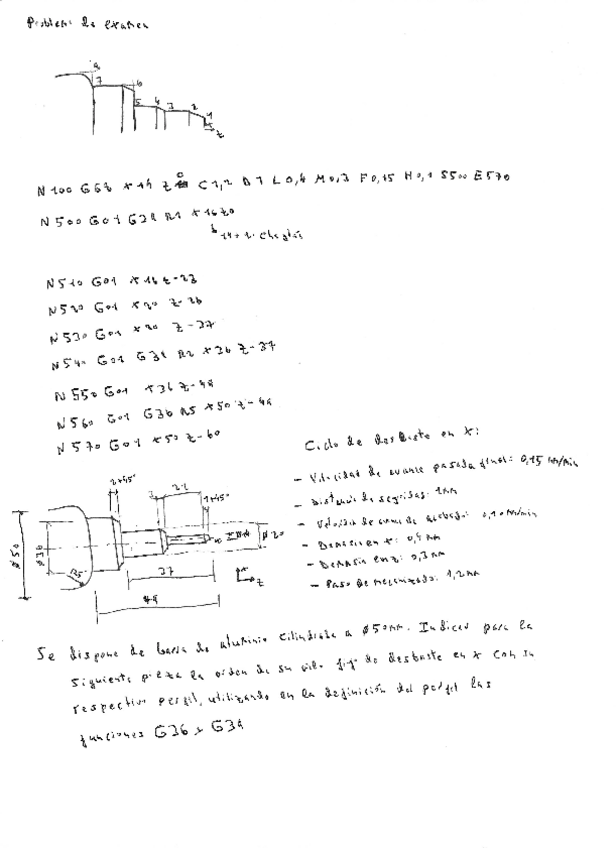 Problema de examen
8
7
6
5
4
3
2
1
z
N100 G68 x14 z0 C1,2 D1 L0,4 M0,3 F0,15 H0,1 S500 E570
N500 G01 G39 R1 x16 z0
N510 G01 x16 z-23
N520 G01 x20 z-26
N530 G01 x20 z-37
N540 G01 G39 R2 x36 z-37
N550 G01 x36 z-49
N560 G01 G36 R5 x50 z-49
N570 G01 x50 z-60
Ciclo de desbaste en x:
- Velocidad de avance pasada final: 0,15 mm/min
- Distancia de seguridad: 1mm
- Velocidad de avance de acabado: 0,10 mm/min
- Demasía en x: 0,4 mm
- Demasía en z: 0,3 mm
- Paso de mecanizado: 1,2 mm
2x45°
22
1x45°
ø50
R5
ø20
x
z
37
49
Se dispone de barra de aluminio cilindrada a ø50mm. Indicar para la
siguiente pieza la orden de su ciclo fijo de desbaste en x con su
respectivo perfil, utilizando en la definición del perfil las
funciones G36 y G39